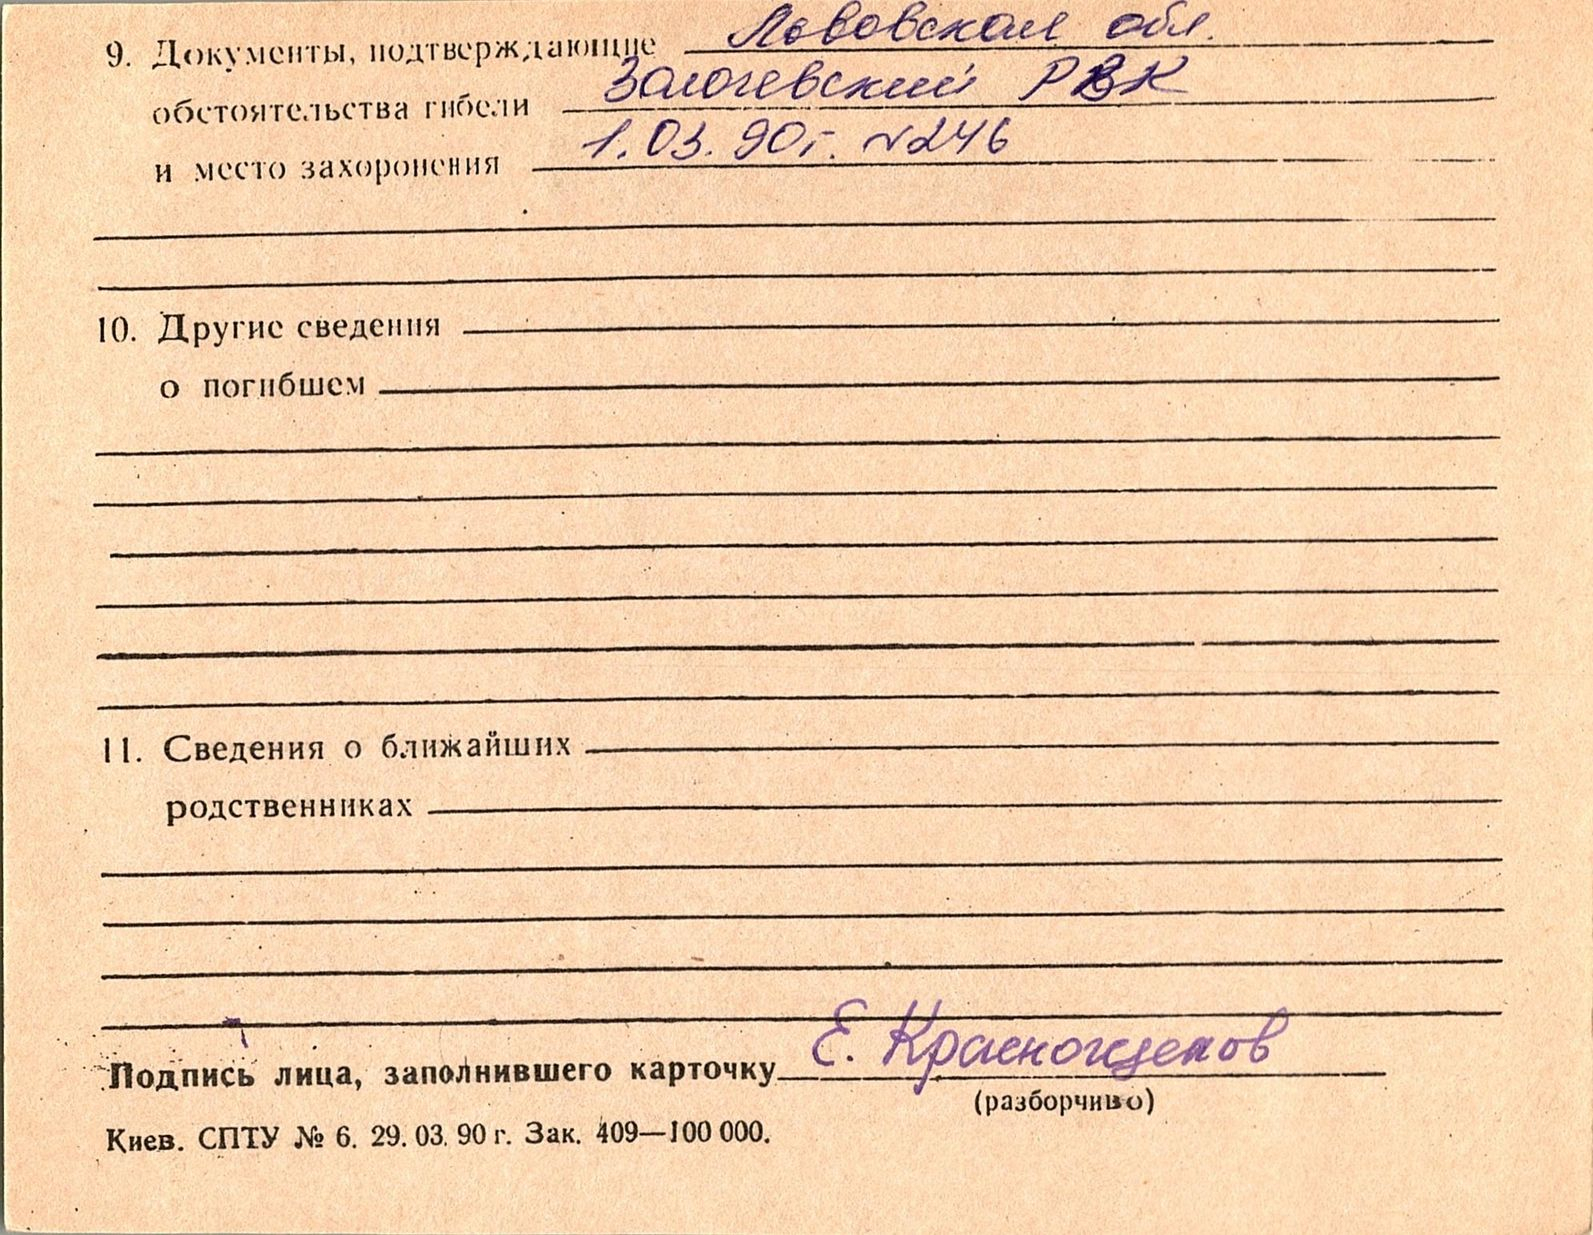 9. Документы, подтверждающие Львовская обл.
обстоятельства гибели Золочевский РВК
и место захоронения 1.03.90г. №246
10. Другие сведения
о погибшем
11. Сведения о ближайших
родственниках
Подпись лица, заполнившего карточку Е. Красножценов
(разборчиво)
Киев. СПТУ № 6. 29. 03. 90 г. Зак. 409—100 000.